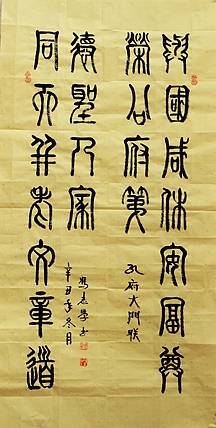 與國咸休安富尊
榮公府第
孔府大門联
同天并老文章道
德聖人家
辛丑年冬月